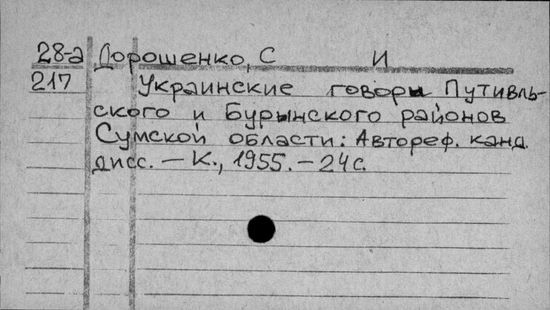 28-а Дорошенко, С И
217 Украинские говоры Путивль-
ского и Бурынского районов
Сумской области: Автореф. канд.
дисс. — К., 1955. — 24 с.